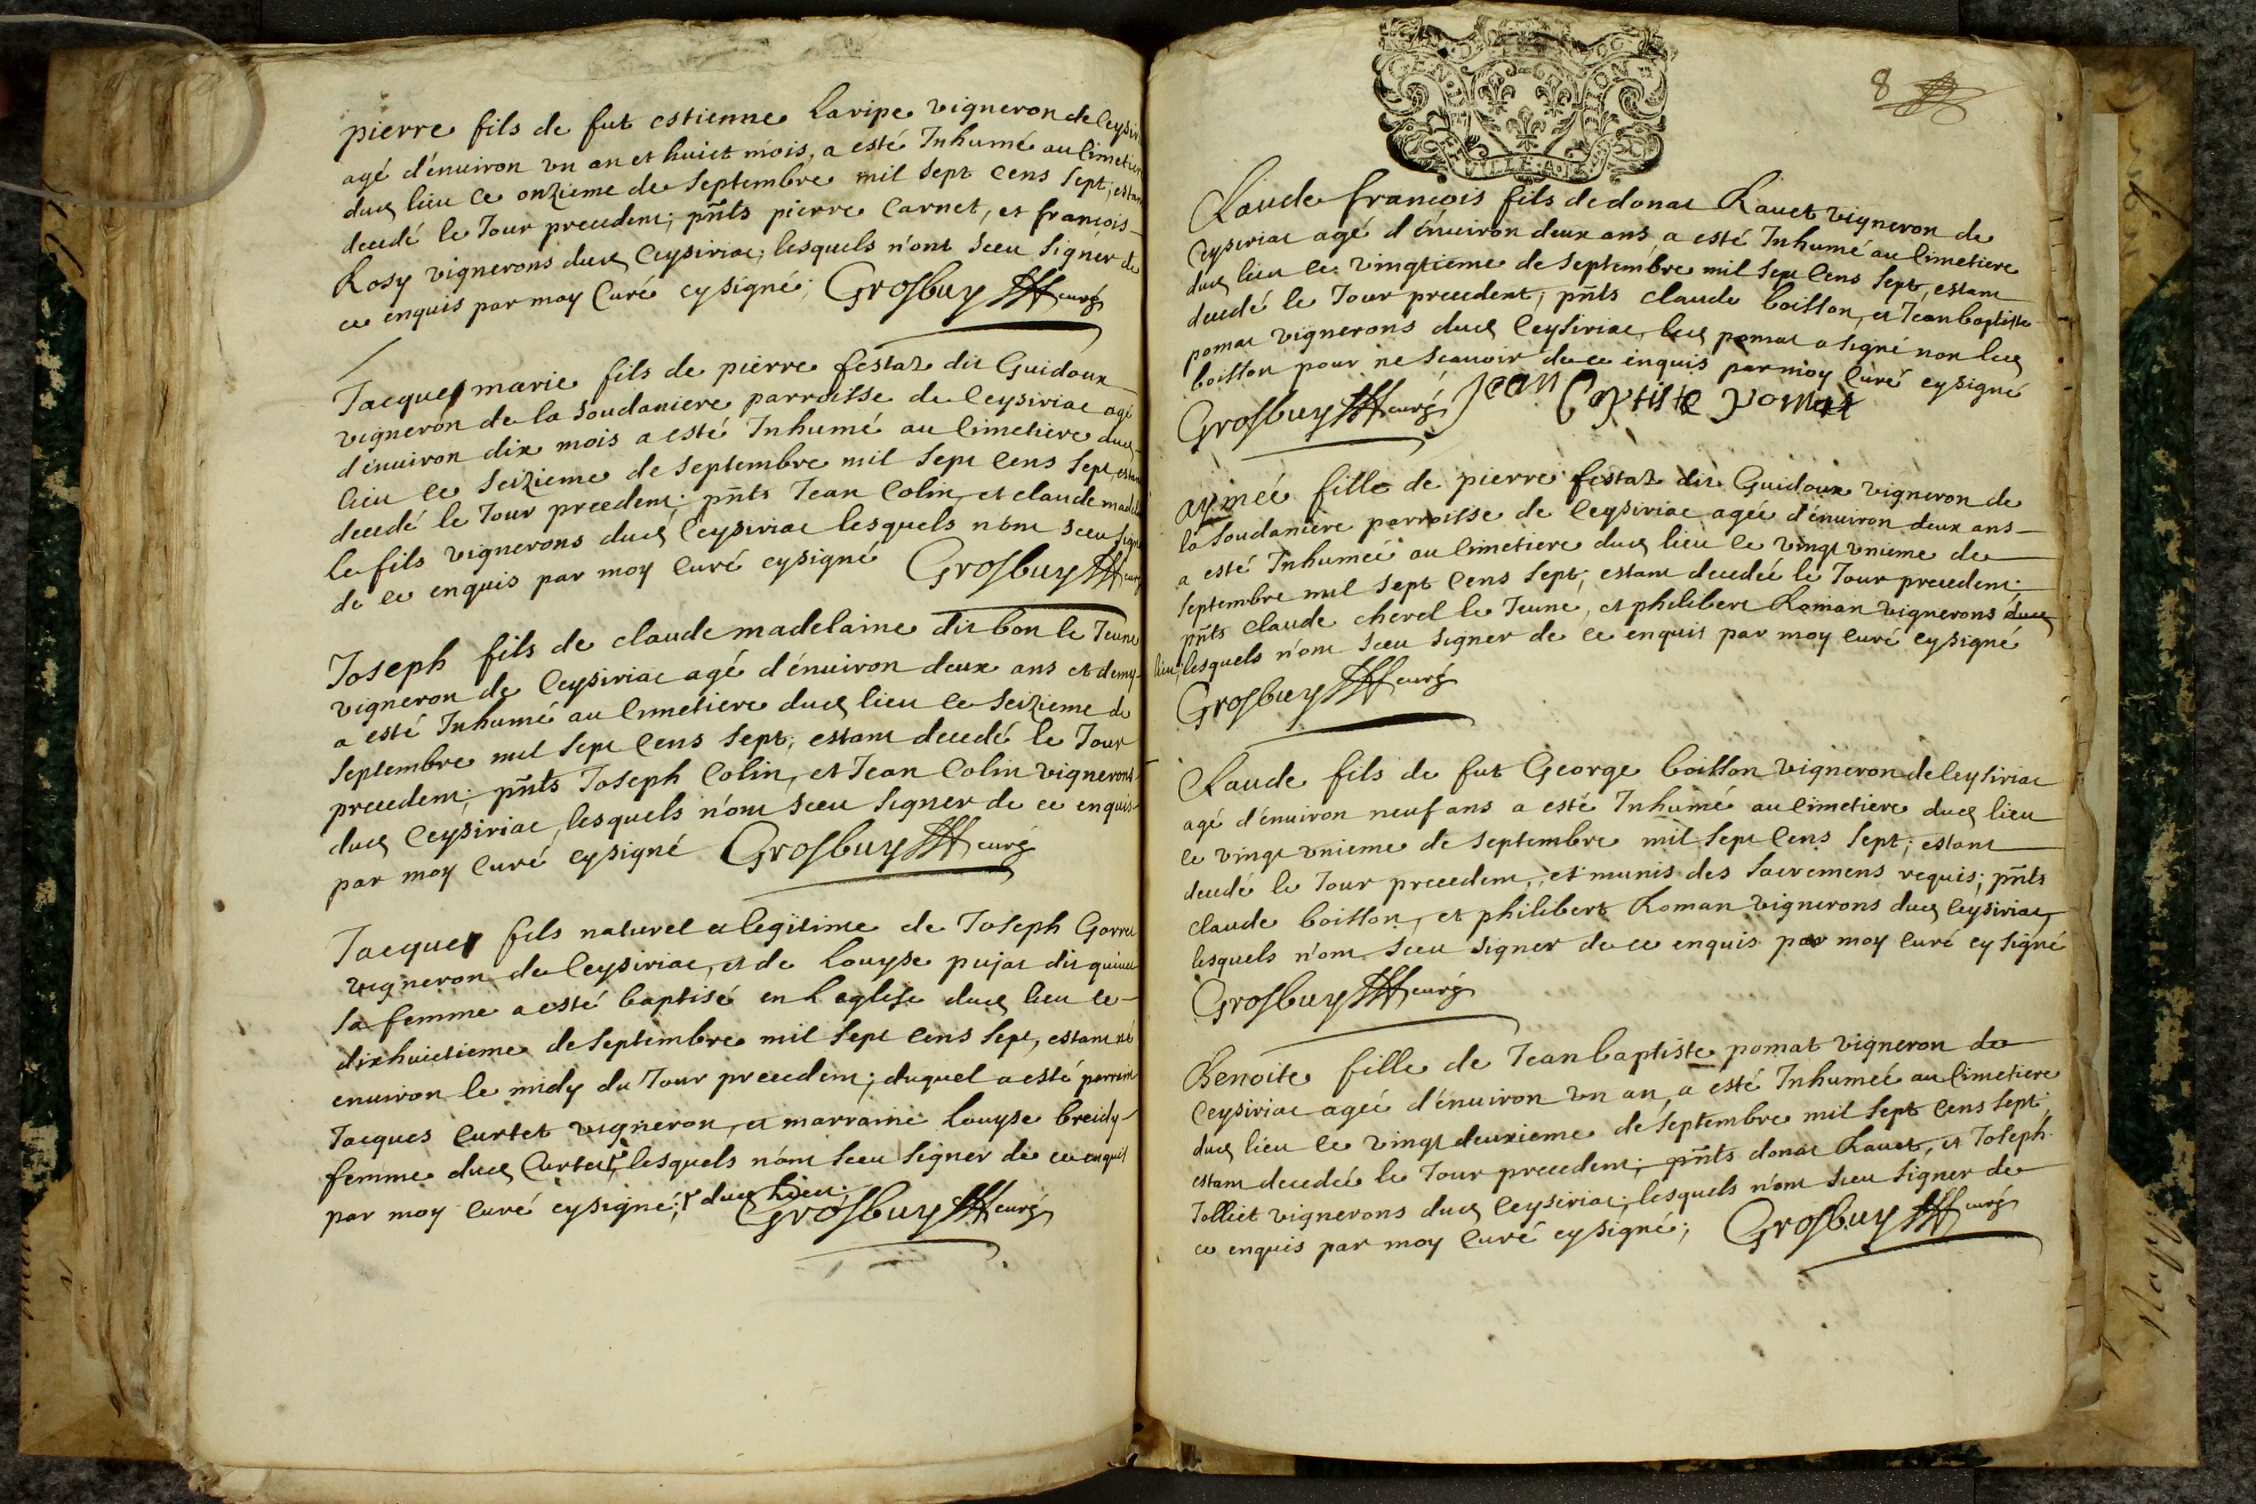 pierre fils de fut estienne Laripe vigneron de Ceysir
agé d'énuiron vn an et huict mois, a esté Inhumé au Cimetier
dud lieu ce onzieme de Septembre mil Sept Cens Sept; estan
decedé le Jour precedent; pñts pierre Carnet, et francois
Rosy vignerons dud Ceysiriac; lesquels n'ont Sceu Signér de
ce enquis par moy Curé cysigné; Grosbuy curé
Jacques marie fils de pierre festaz dit Guidoux
vigneron de la Soudaniere parroisse de Ceysiriac agé
d'énuiron dix mois a esté Inhumé au Cimetiere dud
lieu ce Seizieme de Septembre mil Sept Cens Sept, estan
decedé le Jour precedent; pñts Jean Colin, et claude madel
le fils vignerons dud Ceysiriac lesquels n'ont Sceu Signe
de ce enquis par moy Curé cysigné Grosbuy cur
Joseph fils de claude madelaine dit bon le Jeune
vigneron de Ceysiriac agé d'énuiron deux ans et demy
a esté Inhumé au Cimetiere dud lieu ce Seizieme de
Septembre mil Sept Cens Sept; estant decedé le Jour
precedent; pñts Joseph Colin, et Jean Colin vignerons
dud Ceysiriac, lesquels n'ont Sceu Signer de ce enquis
par moy Curé cysigné Grosbuy curé
Jacques fils naturel et legitime de Joseph
vigneron de Ceysiriac, et de Louyse pujat dit
sa femme a esté baptisé en L'eglise dud lieu ce
dixhuictieme de Septembre mil Sept Cens Sept, estant né
enuiron le midy du Jour precedent; duquel a esté parrein
Jacques Curtet vigneron, et marraine Louyse breidy
femme dud Curtet, lesquels n'ont Sceu Signer de ce enquit
par moy Curé cysigné; dud lieu. Grosbuy curé
8
GEN DIION
Claude francois fils de donat Rauet vigneron de
Ceysiriac agé d'énuiron deux ans a esté Inhumé au Cimetiere
dud lieu ce vingtieme de Septembre mil Sept Cens Sept, estant
decedé le Jour precedent, pñts claude boisson, et Jean baptiste
pomat vignerons dud Ceysiriac, led pomat a Signé non led
boisson pour ne Scauoir de ce enquis par moy Curé cysigné
Grosbuy curé Jean baptiste pomat
aymeé fille de pierre festaz dit Guidoux vigneron de
la Soudaniere parroisse de Ceysiriac ageé d'énuiron deux ans
a esté Inhumeé au Cimetiere dud lieu ce vingt vnieme de
Septembre mil Sept Cens Sept; estant decedeé le Jour precedent;
pñts claude cherel le Jeune, et philibert Roman vignerons dud
lieu, lesquels n'ont Sceu Signer de ce enquis par moy Curé cysigné
Grosbuy curé
Claude fils de fut George boisson vigneron de Ceysiriac
agé d'énuiron neuf ans a esté Inhumé au Cimetiere dud lieu
ce vingt vnieme de Septembre mil Sept Cens Sept; estant
decedé le Jour precedent, et munis des Sacremens requis; pñts
claude boisson, et philibert Roman vignerons dud Ceysiriac,
lesquels n'ont Sceu Signer de ce enquis par moy Curé cysigné
Grosbuy curé
Benoite fille de Jean baptiste pomat vigneron de
Ceysiriac ageé d'énuiron vn an, a esté Inhumeé au Cimetiere
dud lieu ce vingt deuxieme de Septembre mil Sept Cens Sept;
estant decedeé le Jour precedent; pñts donat Rauet, et Joseph
Jolliet vignerons dud Ceysiriac; lesquels n'ont Sceu Signer de
ce enquis par moy Curé cysigné; Grosbuy curé